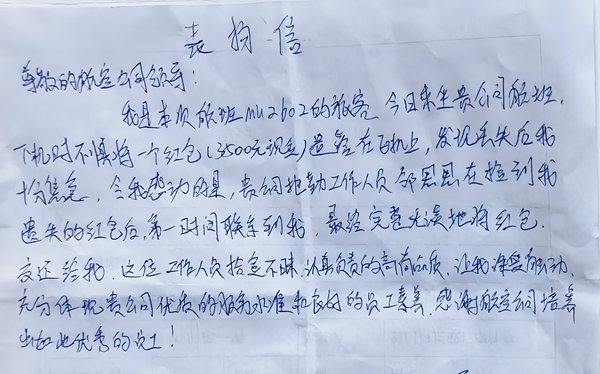 表扬信
尊敬的航空公司领导：
我是本次航班mu2602的旅客，今日乘坐贵公司航班，
下机时不慎将一个红包（3500元现金）遗落在飞机上，发现丢失后我
十分焦急，令我感动的是，贵公司地勤工作人员邹思思在捡到我
遗失的红包后，第一时间联系到我，最终完整无误地将红包
交还给我，这位工作人员拾金不昧、认真负责的高尚品质，让我深受感动，
充分体现贵公司优质的服务水准和良好的员工素养，感谢航空公司培养
出如此优秀的员工！